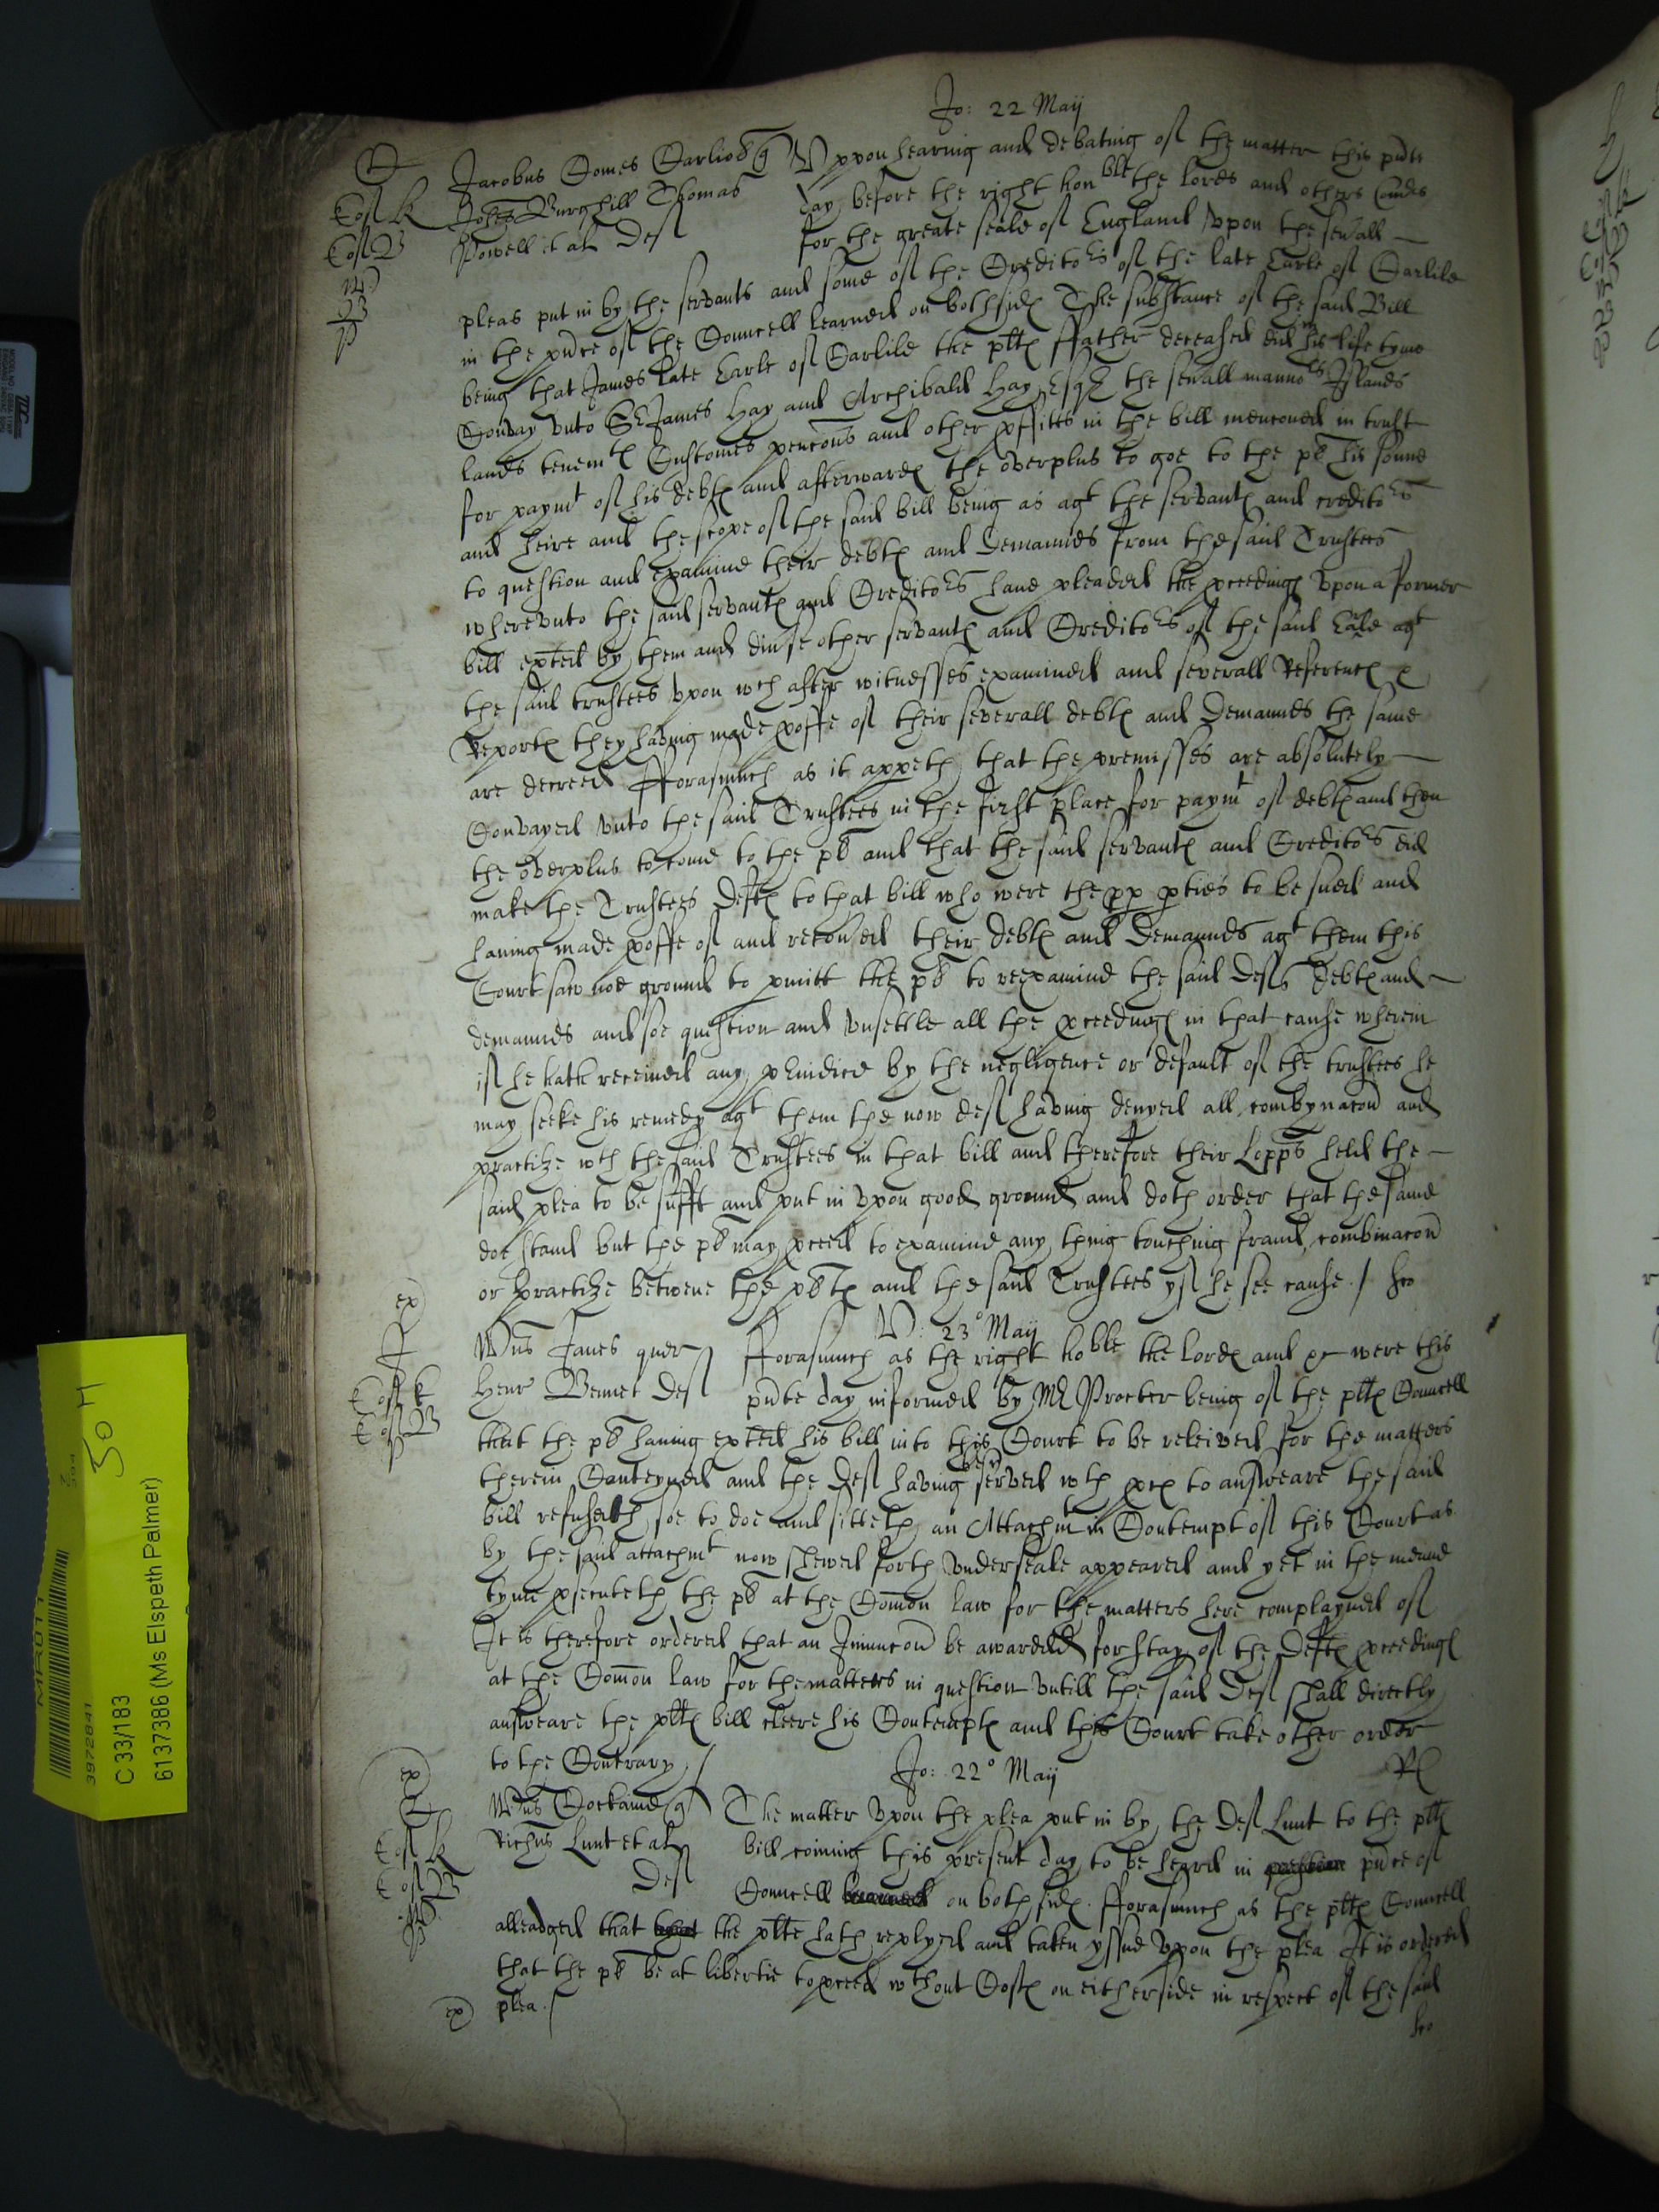 Jo: 22 Maij
Jacobus Comes Carliol q Uppon hearing and debating of the matter this pnte
Johes Burghill Thomas day before the right honble the lordes and others Comrs
Powell et al Def for the greate seale of England upon the seuall
pleas put in by the servants and some of the Creditors of the late Earle of Carlile
in the pnce of the Councell learned on both sides The substance of the said Bill
being that James late Earle of Carlile the plts ffather deceased did in his life tyme
Convay unto Sr James Hay and Archibald Hay Esqr the seuall mannors Islands
lands tenemts Customes pencons and other pffitts in the bill menconed in trust
for paymt of his debts and afterwards the overplus to goe to the pl his sonne
and heire and the scope of the said bill being as agt the servants and creditors
to question and examine their debts and demaunds from the said Trustees
wherevnto the said servants and Creditors haue pleaded the pceedings upon a former
bill exted by them and diuse other servants and Creditors of the said Earle agt
the said trustees upon wch after witnesses examined and severall References &
Reports they having made proffe of their severall debts and demaunds the same
are decreed fforasmuch as it appeth that the premisses are absolutely
Convayed vnto the said Trustees in the first place for paymt of debts and then
the overplus to come to the pl and that the said servants and Creditors did
make the Trustees Defts to that bill who were the pp pties to be sued and
haueing made proffe of and recoued their debts and demaunds agt them this
Court saw noe ground to pmitt the pl to reexamine the said Defs debts and
demaunds and soe question and vnsettle all the pceedings in that cause wherein
if he hath receiued any piudice by the negligence or default of the trustees he
may seeke his remedy agt them the now def having denyed all combynacon and
practize wth the said Trustees in that bill and therefore their Lopps held the
said plea to be sufft and put in upon good ground and doth order that the same
doe stand but the pl may pceed to examine any thing touching fraud combinacon
or practize betwene the pltes and the said Trustees yf he see cause./
ex
V: 23o Maij
Wms Janes quer fforasmuch as the right hoble the Lords and &c were this
Henr Bennet Def pnte day informed by Mr Procter being of the plts Councell
that the pl haueing exted his bill into this Court to be releived for the matters
therein Conteyned and the Def having been served wth pces to answeare the said
bill refuseth soe to doe and sitteth an Attachmt in Contempt of this Court as
by the said attachmt now shewed forth under seale appeared and yet in the meane
tyme psecuteth the pl at the Comon law for the matters here complayned of
It is therefore ordered that an Iniuncon be awarded for stay of the Defts pceedings
at the Comon law for the matters in question vntill the said Def shall directly
answeare the plts bill cleere his Contempts and this Court take other order
to the Contrary /
ex
Jo: 22o Maij
Wms q The matter upon the plea put in by the Def Lunt to the plts
Richus Lunt et al bill coming this present day to be heard in pnce of
Def Councell on both sides fforasmuch as the plts Councell
alleadged that the plte hath replyed and taken yssue upon the plea It is ordered
that the pl be at libertie to pceed wthout Costs on either side in respect of the said
ex plea./
MR011
3972841
C 33/183
6137386 (Ms Elspeth Palmer)
50 H